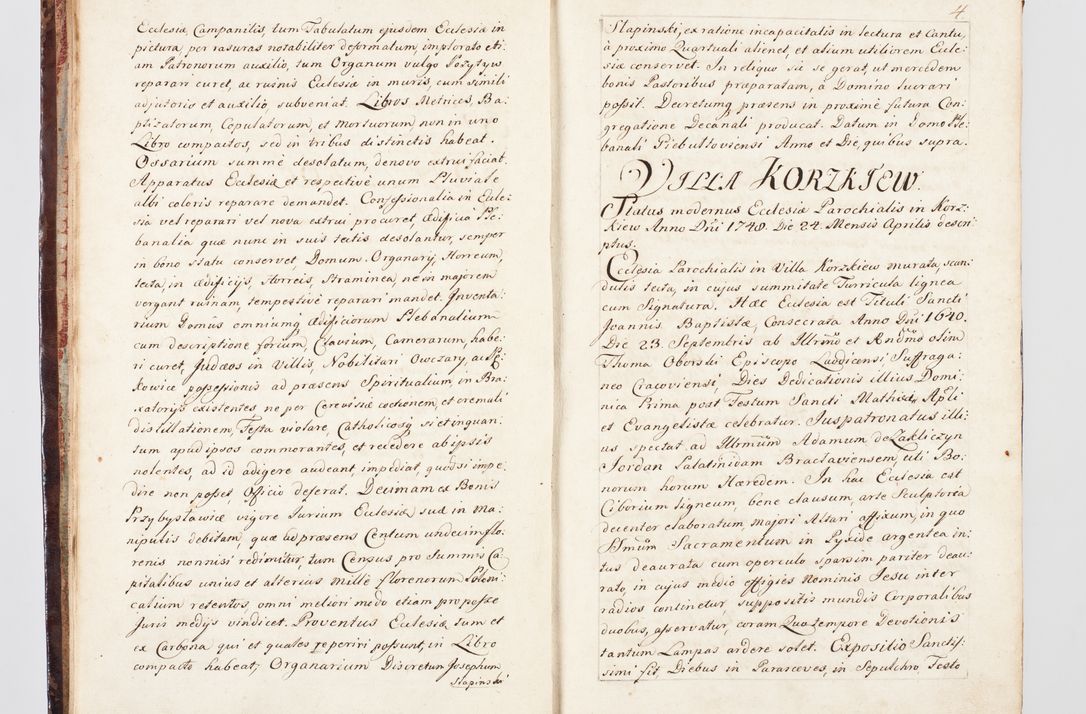 Ecclesiæ Campanilis, tum Tabulatum ejusdem Ecclesiæ in
pictura, per rasuras notabiliter deformatum, implorato eti:
am Patronorum auxilio, tum Organum vulgo Pozytyw
reparari curet, ac ruinis Ecclesiæ in muris, cum simili
adjutorio et auxilio subveniat. Libros Metrices, Ba:
ptizatorum, Copulatorum, et Mortuorum non in uno
Libro compactos, sed in tribus distinctis habeat.
Ossarium summè desolatum, denovo extrui faciat.
Apparatus Ecclesiæ et respectivè unum Pluviale
albi coloris reparare demandet. Confessionalia in Eccle:
sia vel reparari vel nova extrui procuret, Ædificia Ple:
banalia quæ nunc in suis tectis desolantur, semper
in bono statu conservet, Domum Organarij, Horreum,
tecta, in ædificijs, Horreis, Straminea, ne in majorem
vergant ruinam tempestivè reparari mandet. Inventa:
rium Domûs omniumq Ædificiorum Plebanalium
cum descriptione forium, Clavium, Camerarum, habe:
ri curet, Judæos in Villis, Nobilitari Owczary, ac
kowice possessionis ad præsens Spiritualium, in Bra:
xatorijs existentes, ne per Cerevisiæ coctionem, et cremati
distillationem, Festa violare, Catholicosq si et inquan:
tum apud ipsos commorantes, et recedere ab ipsis
nolentes, ad id adigere audeant, impediat, quodsi impe:
dire non posset, Officio deferat. Decimam ex Bonis
Przybysławice vigore Jurium Ecclesiæ suæ in ma:
nipulis debitam, quæ ad præsens Centum undecim flo:
renis nonnisi redimitur, tum Census pro Summis Ca:
pitalibus unius et alterius millè florenorum Poloni:
calium retentos, omni meliori modo etiam pro posse
Juris medijs vindicet. Proventus Ecclesiæ tum et
ex Carbona qui et quales reperiri possunt, in Libro
compacto habeat; Organarium Discretum Josephum
Slapinski
4.
Slapinski, ex ratione incapacitatis in lectura et Cantu,
à proximo Quartuali alienet, et alium utiliorem Eccle:
siæ conservet. In reliquo sic se gerat, ut mercedem
bonis Pastoribus præparatam, à Domino lucrari
possit. Decretumq præsens in proximè futura Con:
gregatione Decanali producat. Datum in Domo Ple:
banali Giebultoviensi Anno et Die, quibus supra.
VILLA KORZKIEW.
Status modernus Ecclesiæ Parochialis in Korz:
kiew Anno Dñi 1748. Die 24. Mensis Aprilis descri
ptus.
Ecclesia Parochialis in Villa Korzkiew murata, scan:
dulis tecta, in cujus summitate Turricula lignea
cum Signatura. Hæc Ecclesia est Tituli Sancti
Joannis Baptistæ, Consecrata Anno Dñi 1640.
Die 23. Septembris ab Illrmo et Rndmo olim
Thoma Oborski Episcopo Laodicensi Suffraga:
neo Cracoviensi, Dies Dedicationis illius Domi:
nica Prima post Festum Sancti Mathæi, Apli
et Evangelistæ celebratur. Juspatronatus illi:
us spectat ad Illrmum Adamum de Zakliczyn
Jordan Palatinidam Braclaviensem, uti Bo:
norum horum Hæredem. In hac Ecclesia est
Ciborium ligneum, bene clausum, arte Sculptoria
decenter elaboratum, majori Altari affixum, in quo
Ssmum Sacramentum in Pyxide argentea in:
tus deaurata cum operculo sparsim pariter deau:
rato, in cujus medio effigies Nominis Jesu inter
radios continetur, suppositis mundis Corporalibus
duobus, asservatur, coram Quo tempore Devotionis
tantum Lampas ardere solet. Expositio Sanctis:
simi fit, Diebus in Parasceves, in Sepulchro Festo